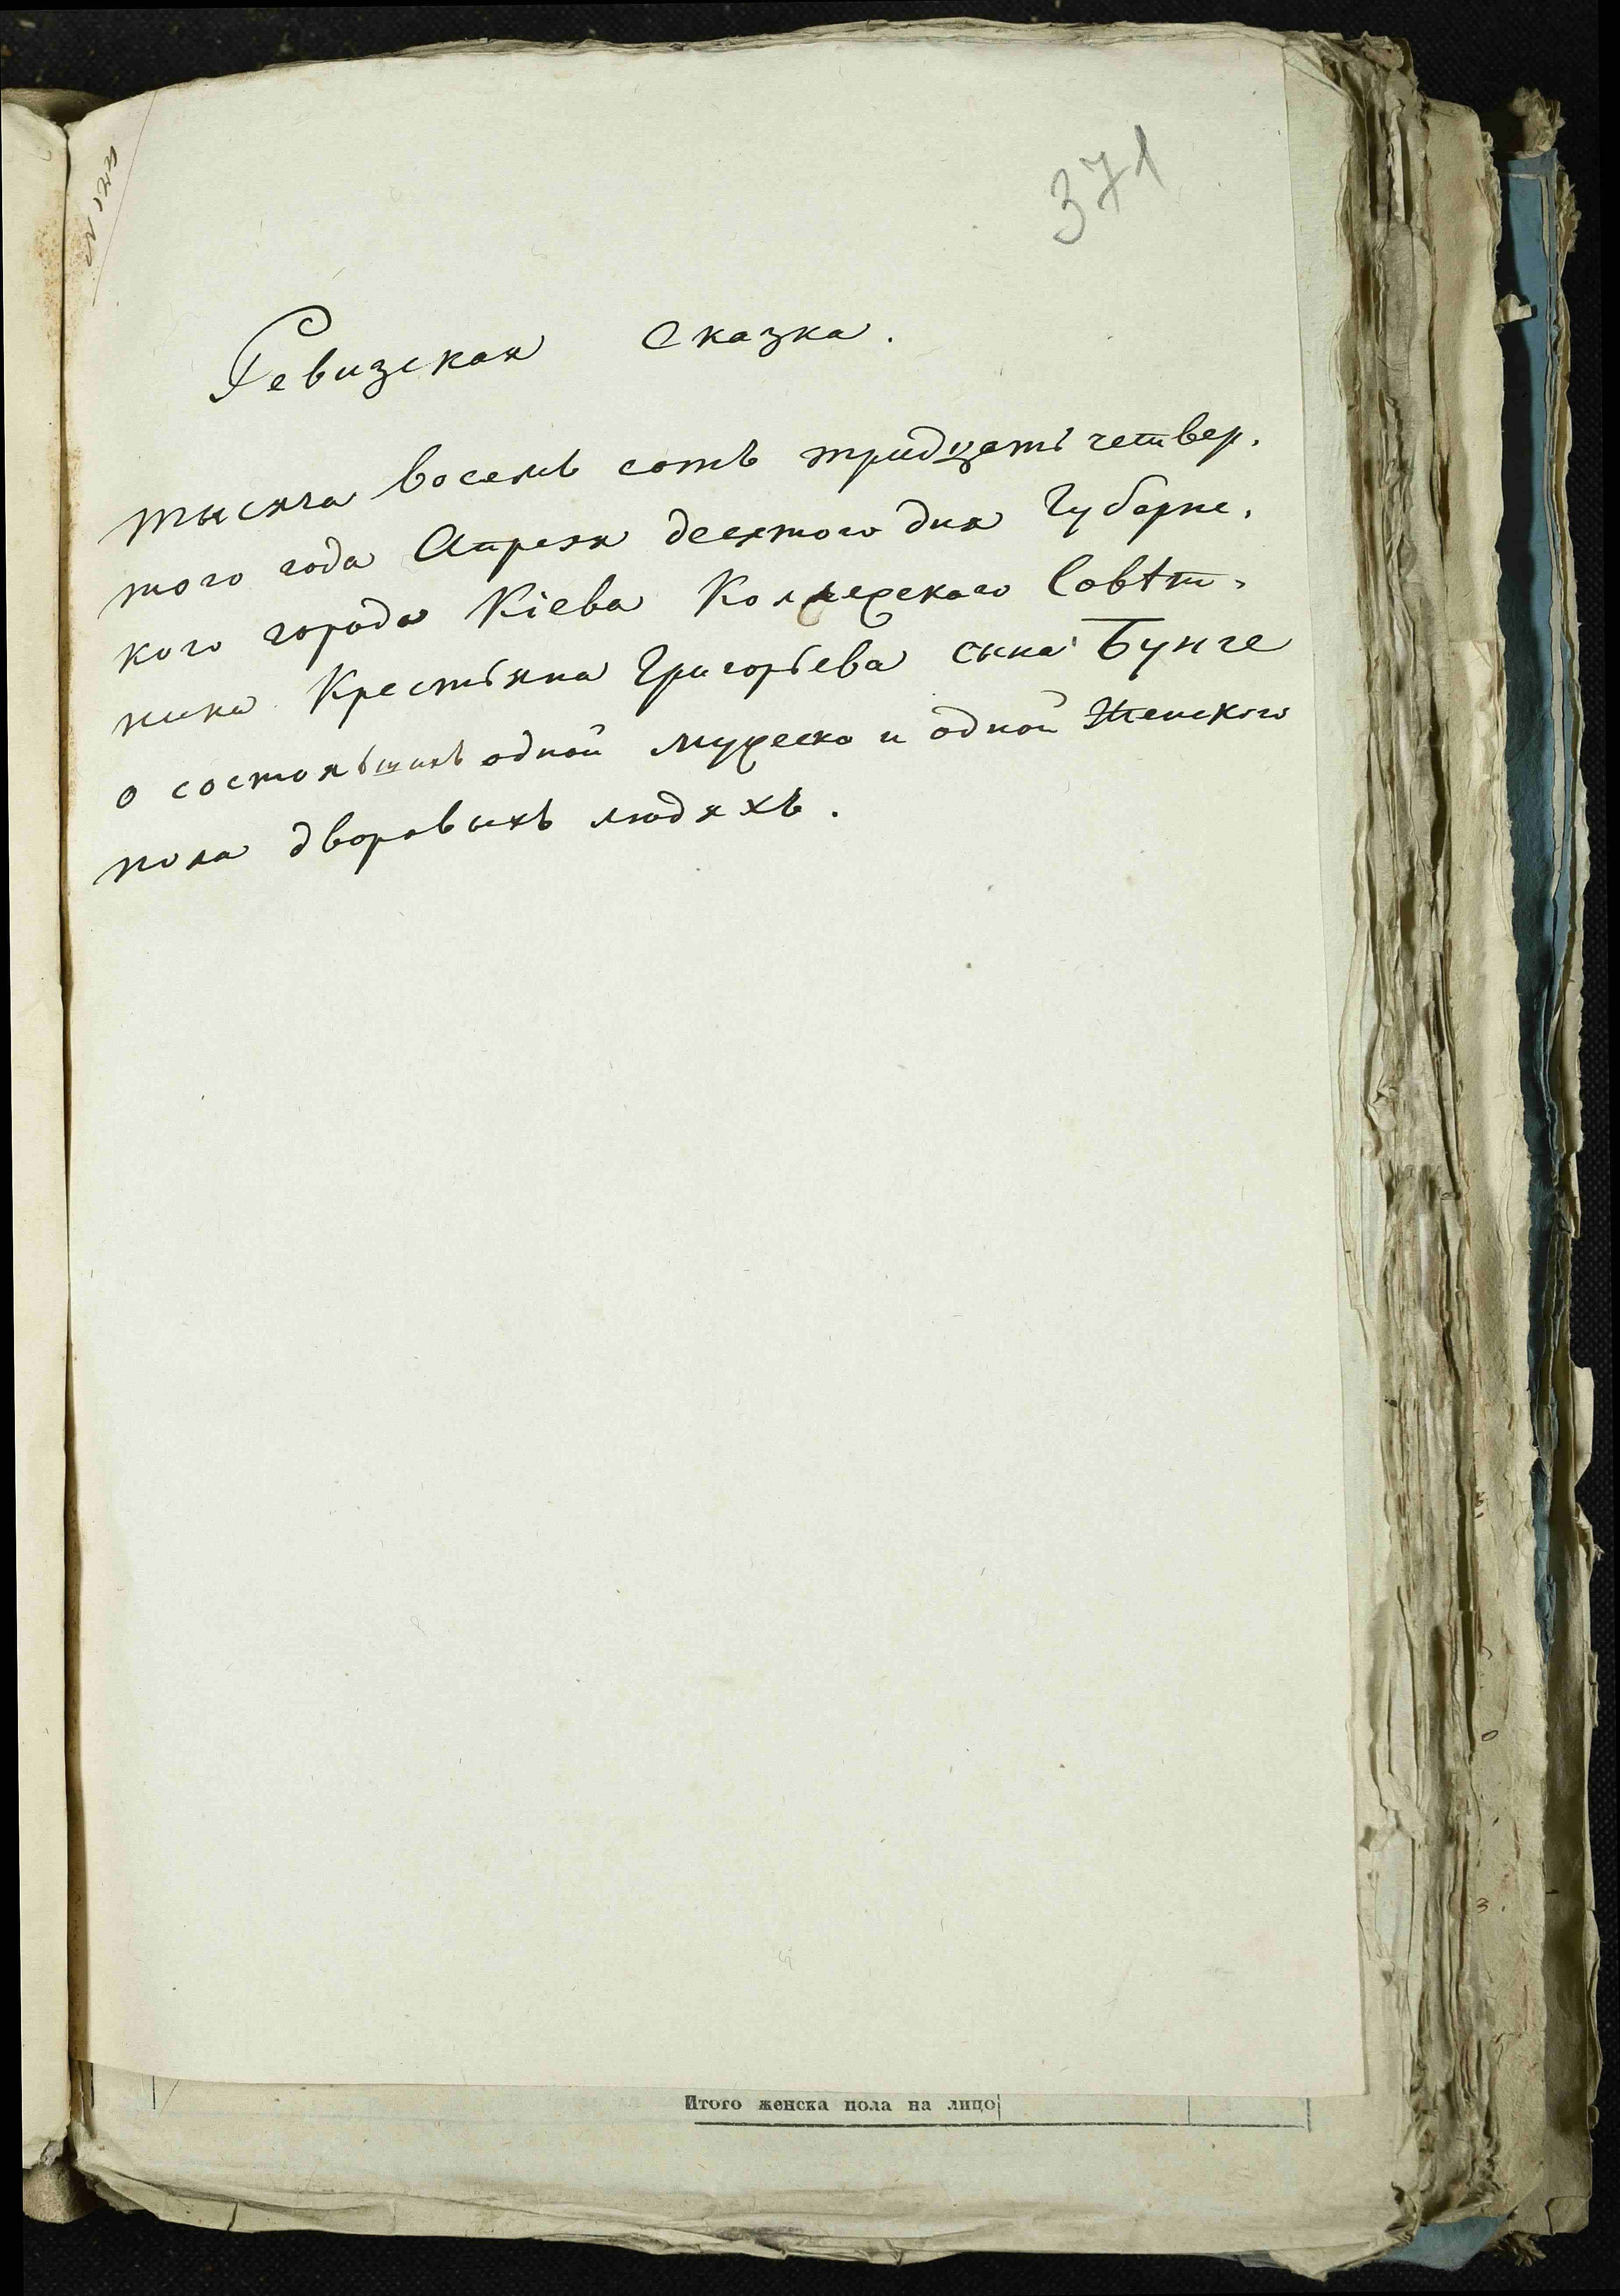 371
Ревизская Сказка.
тысяча восемь сотъ тридцать четвер-
того года Апреля десятого дня Губернс-
кого города Кіева Коллежскаго Совѣт-
ника Крестьяна Григорьева сына Бунге
о состоявшихъ одной мужеска и одной Женского
пола дворовыхъ людяхъ.
Итого женска пола на лицо